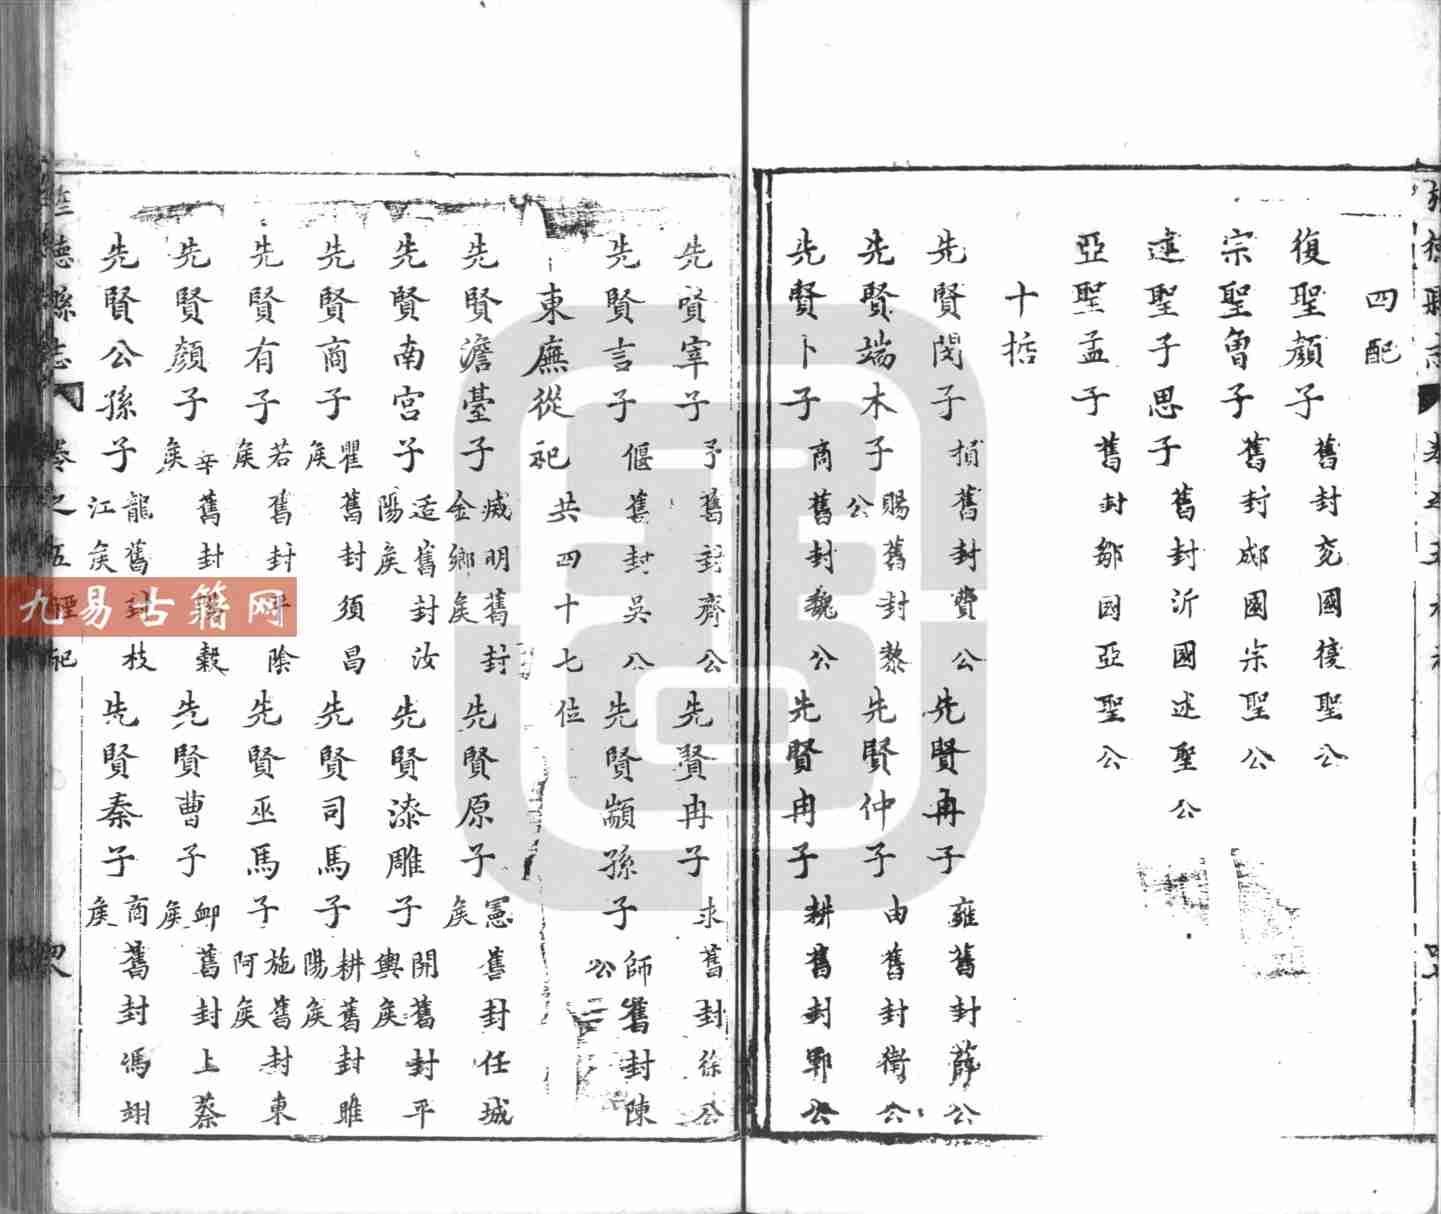 四配
復聖顏子 舊封兗國復聖公
宗聖曾子 舊封郕國宗聖公
述聖子思子 舊封沂國述聖公
亞聖孟子 舊封鄒國亞聖公
十哲
先賢閔子 損舊封費公 先賢冉子 雍舊封薛公
先賢端木子 賜舊封黎公 先賢仲子 由舊封衛公
先賢卜子 商舊封魏公 先賢冉子 耕舊封鄆公
先賢宰子 予舊封齊公 先賢冉子 求舊封徐公
先賢言子 偃舊封吳公 先賢顓孫子 師舊封陳公
東廡從祀 共四十七位
先賢澹臺子 滅明舊封金鄉侯 先賢原子 憲舊封任城侯
先賢南宮子 适舊封汝陽侯 先賢漆雕子 開舊封平輿侯
先賢商子 瞿舊封須昌侯 先賢司馬子 耕舊封睢陽侯
先賢有子 若舊封平陰侯 先賢巫馬子 施舊封東阿侯
先賢顏子 辛舊封穀侯 先賢曹子 卹舊封上蔡侯
先賢公孫子 龍舊封枝江侯 先賢秦子 商舊封馮翊侯
德縣志 卷之五 祀
九易古籍网